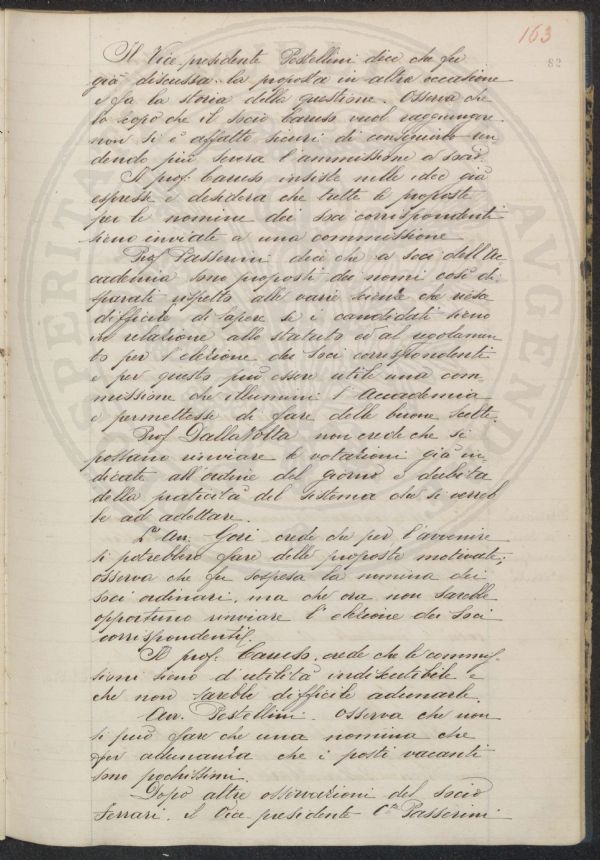 163
82
Il Vice presidente Pestellini dice che fu
già discussa la proposta in altra occasione
e fa la storia della questione. Osserva che
lo scopo che il socio Caruso vuol raggiungere
non si è affatto sicuri di conseguirlo ren
dendo più severa l'ammissione a socio.
Il prof. Caruso insiste nelle idee già
espresse e desidera che tutte le proposte
per le nomine dei soci corrispondenti
sieno inviate a una commissione
Prof Passerini dice che a soci dell'Ac
cademia sono proposti dei nomi così di
sparati rispetto alle varie scienze che riesce
difficile di sapere se i candidati sieno
in relazione allo statuto ed al regolamen
to per l'elezione dei soci corrispondenti
e per questo può essere utile una com
missione che illumini l'Accademia
e permettesse di fare delle buone scelte.
Prof. Dalla Volta non crede che si
possano rinviare le votazioni già in
dicate all'ordine del giorno e dubita
della praticità del sistema che si vorreb
be ad adottare.
Avv. Gori crede che per l'avvenire
si potrebbero fare delle proposte motivate;
osserva che fu sospesa la nomina dei
soci ordinari, ma che ora non sarebbe
opportuno rinviare l'elezione dei soci
corrispondenti.
Il prof. Caruso crede che le commis
sioni sieno d'utilità indiscutibile e
che non sarebbe difficile adunarle.
Avv. Pestellini. Osserva che non
si può fare che una nomina che
per adunanza che i posti vacanti
sono pochissimi.
Dopo altre osservazioni del socio
Ferrari, il Vice-presidente Passerini
PROSPERITA
AUGENDA